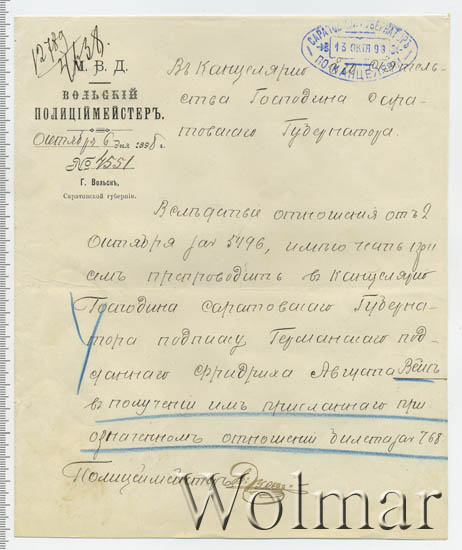 12789
М. В. Д.
ВОЛЬСКІЙ
ПОЛИЦІЙМЕЙСТЕРЪ.
Октября 6 дня 1898 г.
№ 4551
Г. Вольскъ,
Саратовской губерніи.
13 ОКТЯ 98
ПО КАНЦЕЛЯРІИ
Въ Канцелярію
ства Господина Сара-
товскаго Губернатора.
Вслѣдствіе отношенія отъ 2
Октября за № 5496, имѣю честь при
семъ препроводить въ Канцелярію
Господина Саратовскаго Губерна-
тора подписку Германскаго под-
даннаго Фридриха Августа Вейсъ
въ полученіи имъ присланнаго при
означенномъ отношеніи билета за № 768
Полиціймейстеръ
Wolmar